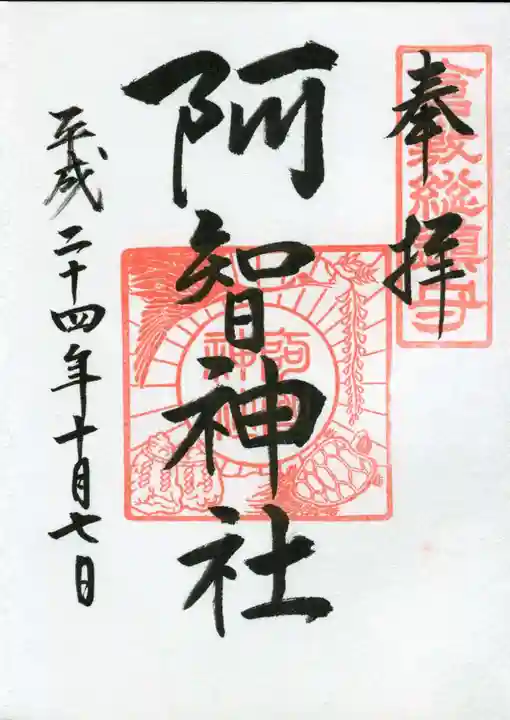 奉拝
倉敷総鎮守
阿智神社
阿智神社
平成二十四年十月七日